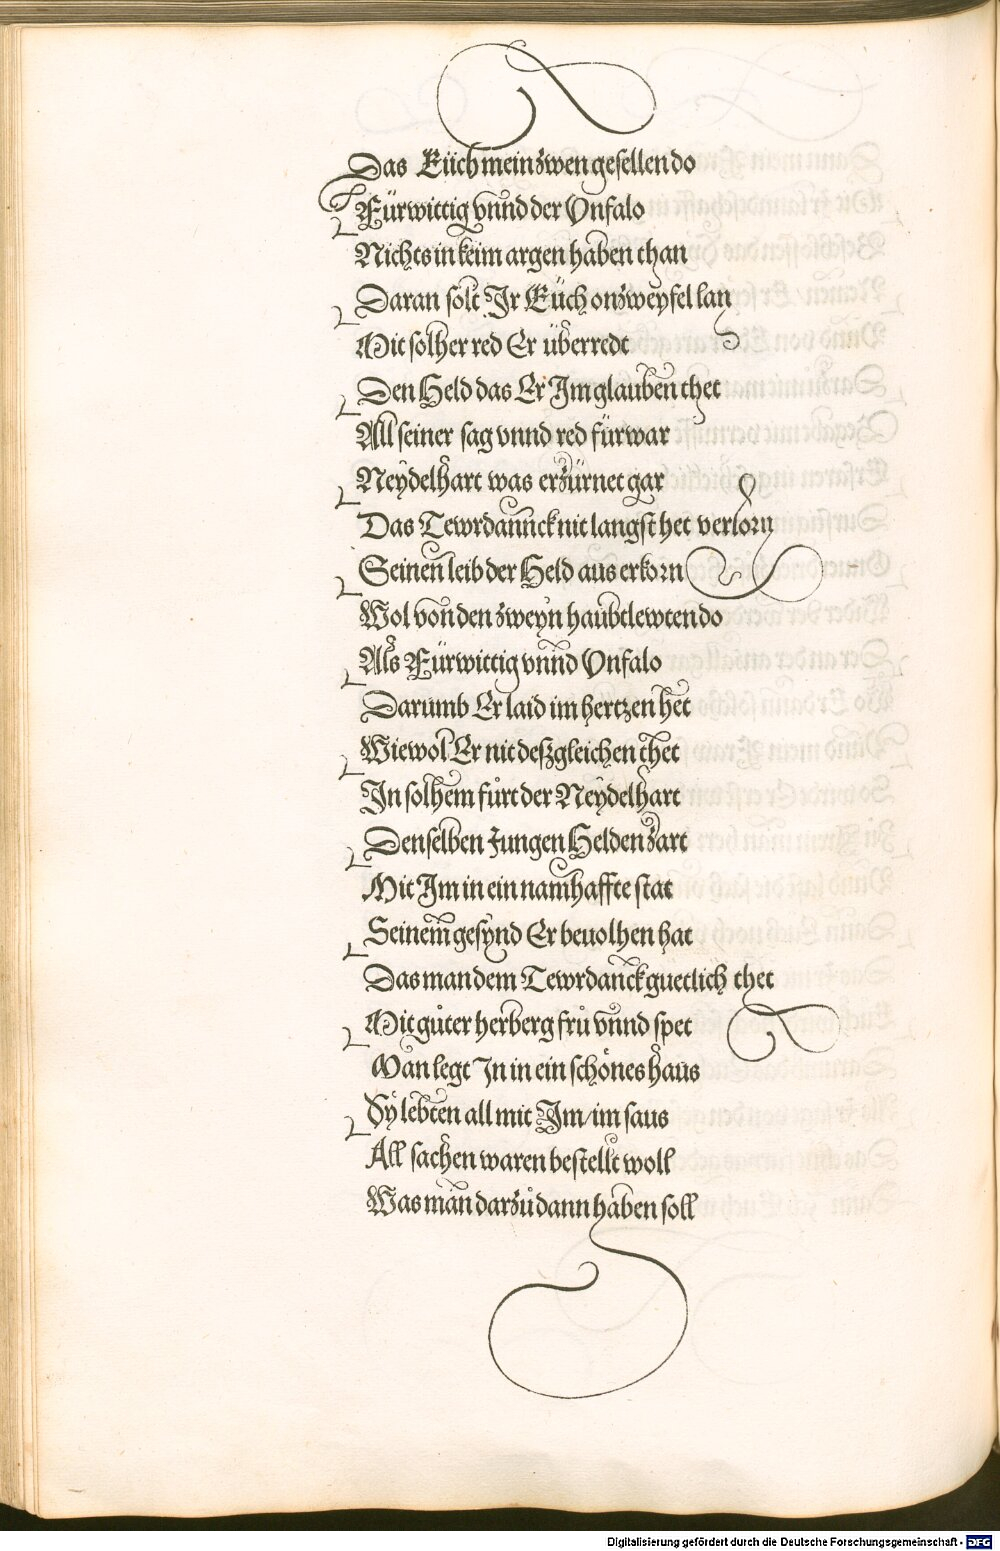 Das Eüch mein zwen gesellen do
Fürwittig vnnd der Vnfalo
Nichts in keim argen haben than
Daran solt Ir Eüch on zweyfel lan
Mit solher red Er überredt
Den Held das Er Im glauben thet
All seiner sag vnnd red fürwar
Neydelhart was erzürnet gar
Das Tewrdannck nit langst het verlorn
Seinen leib der Held aus erkorn
Wol von den zweyn haubtlewten do
Als Fürwittig vnnd Vnfalo
Darumb Er laid im hertzen het
Wiewol Er nit deßgleichen thet
In solhem fůrt der Neydelhart
Denselben Jungen Helden zart
Mit Im in ein namhaffte stat
Seinem gesynd Er beuolhen hat
Das man dem Tewrdanck guetlich thet
Mit gůter herberg frů vnnd spet
Man legt In in ein schönes haus
Sy lebten all mit Im/im saus
All sachen waren bestellt woll
Was man darzů dann haben soll
Digitalisierung gefördert durch die Deutsche Forschungsgemeinschaft - DFG